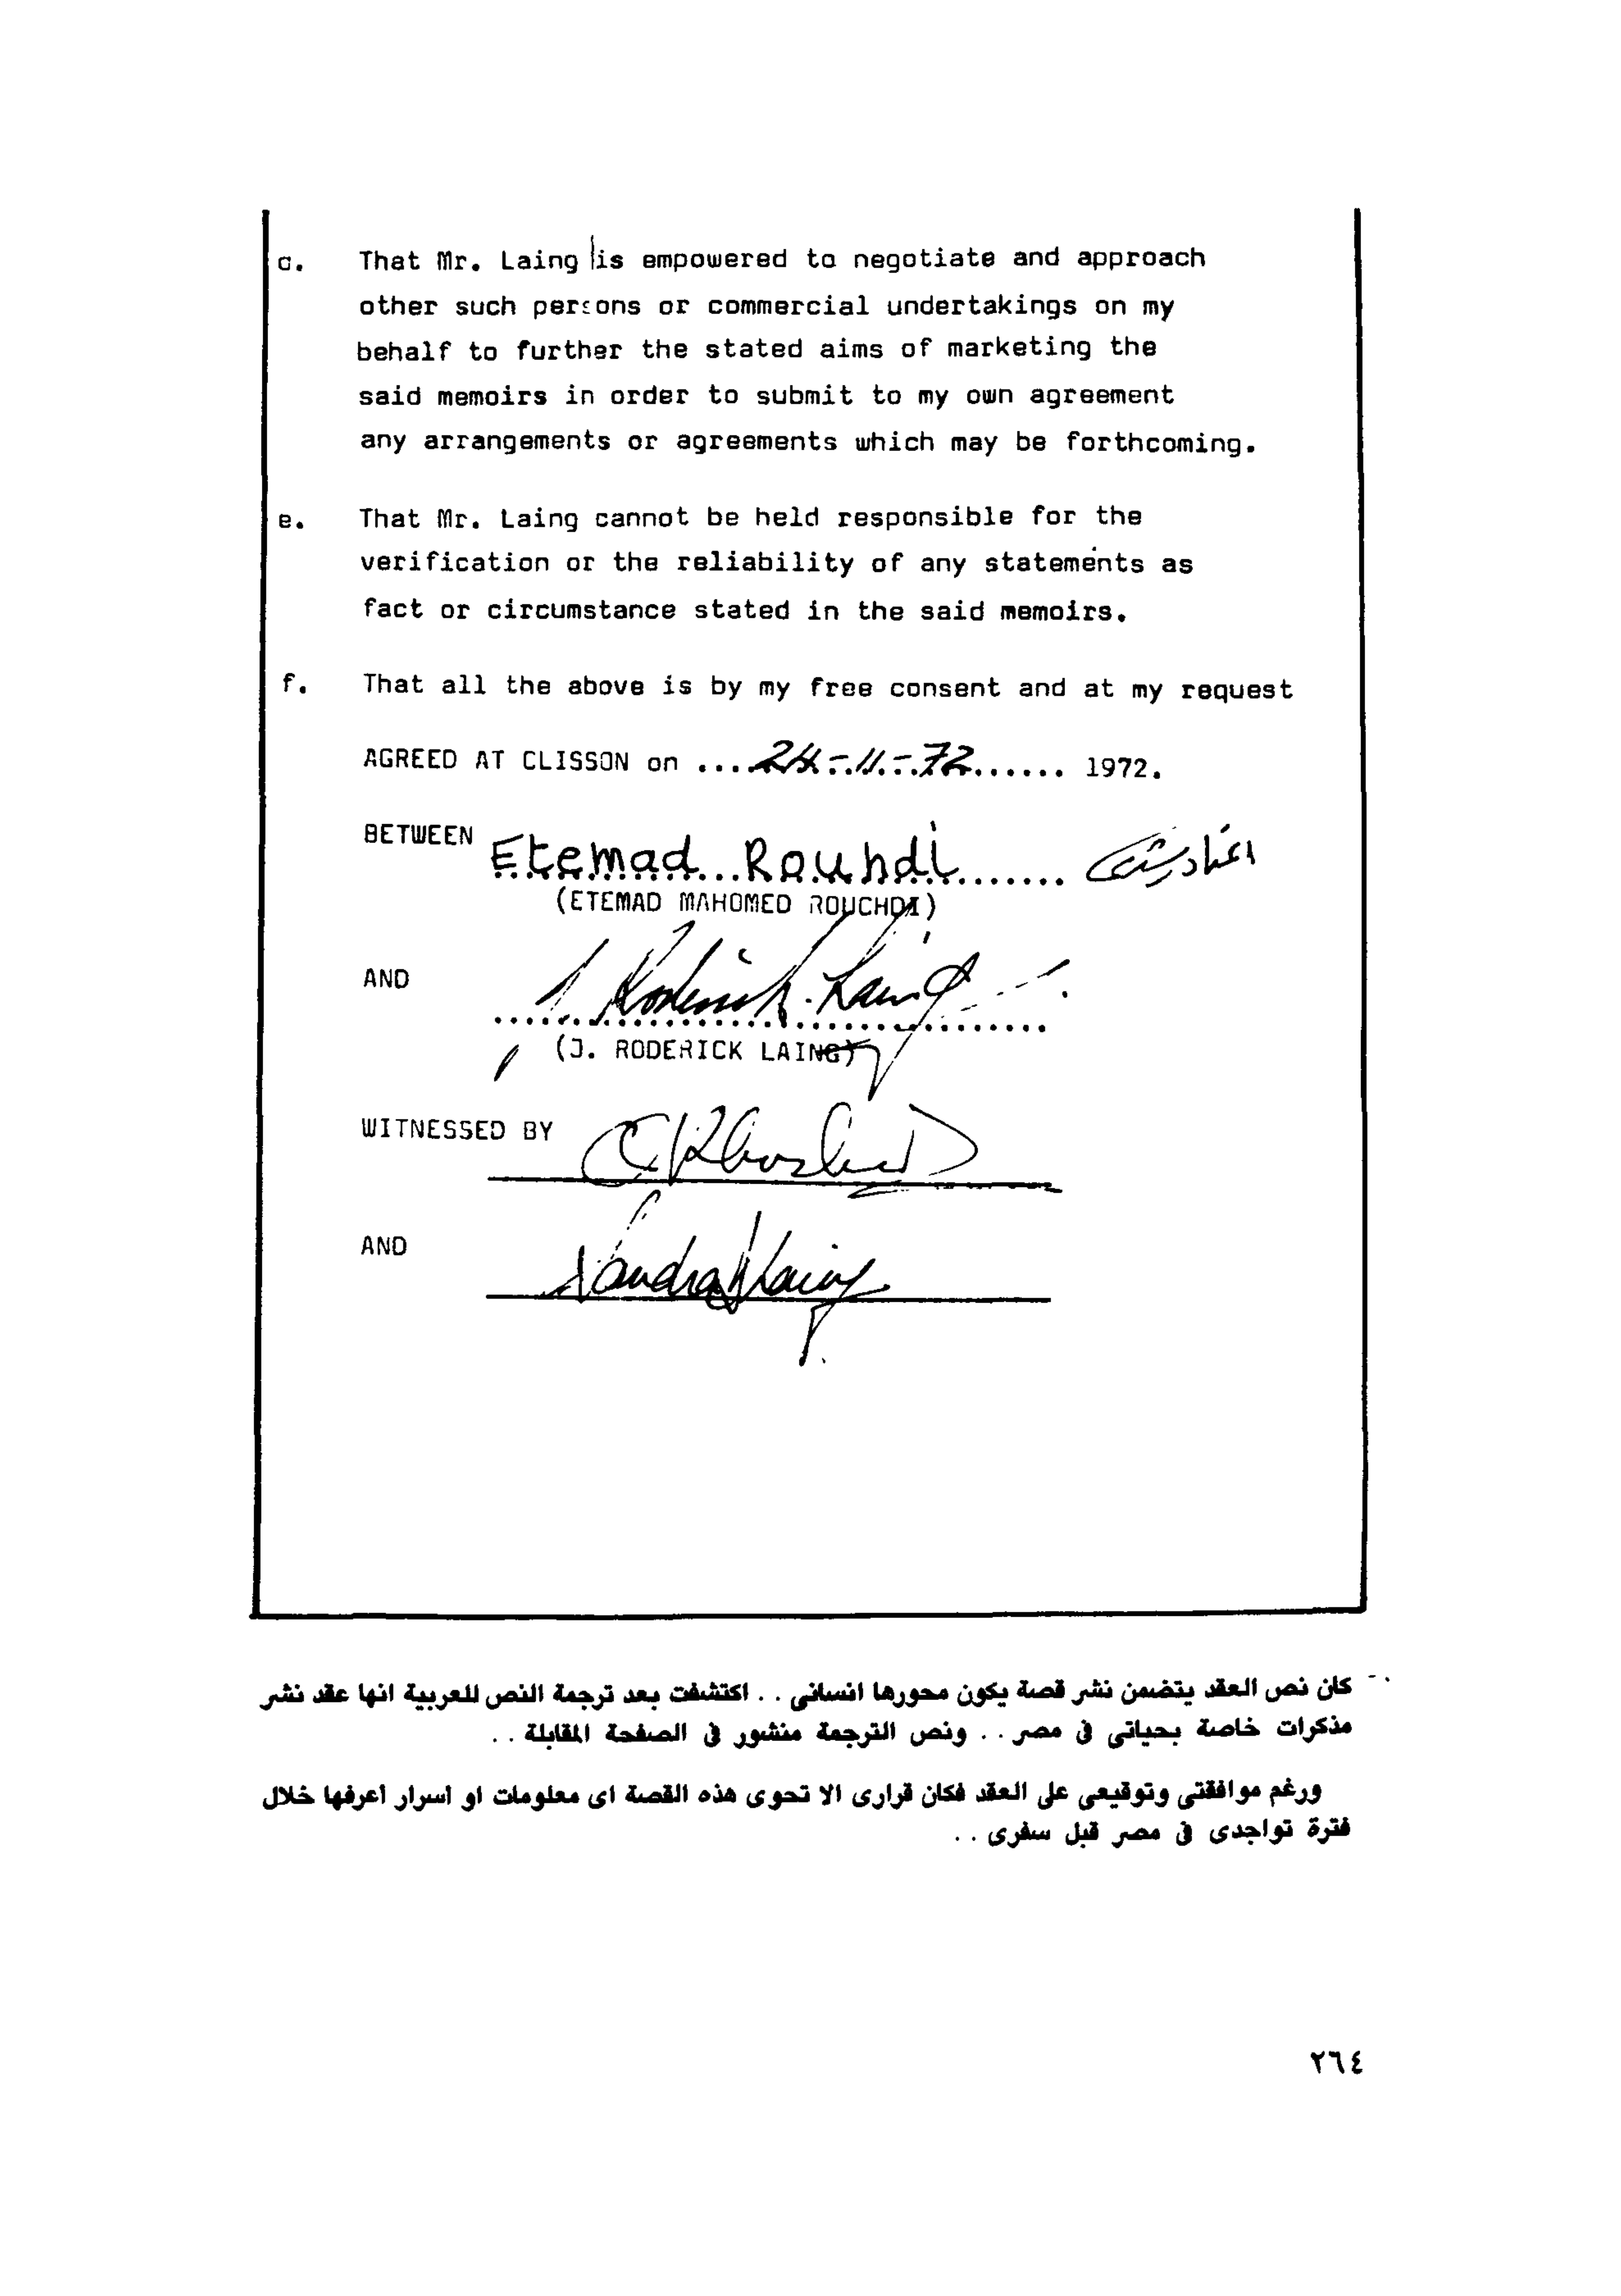 d. That Mr. Laing is empowered to negotiate and approach
other such persons or commercial undertakings on my
behalf to further the stated aims of marketing the
said memoirs in order to submit to my own agreement
any arrangements or agreements which may be forthcoming.
e. That Mr. Laing cannot be held responsible for the
verification or the reliability of any statements as
fact or circumstance stated in the said memoirs.
f. That all the above is by my free consent and at my request
AGREED AT CLISSON on ....24-11-72...... 1972.
BETWEEN Etemad Rouhdi اعتماد رشدى
(ETEMAD MAHOMED ROUCHDI)
AND J. Roderick Laing
(J. RODERICK LAING)
WITNESSED BY
AND Sandra Laing
كان نص العقد يتضمن نشر قصة يكون محورها انسانى . . اكتشفت بعد ترجمة النص للعربية انها عقد نشر
مذكرات خاصة بحياتى فى مصر . . ونص الترجمة منشور فى الصفحة المقابلة . .
ورغم موافقتى وتوقيعى على العقد فكان قرارى الا تحوى هذه القصة اى معلومات او اسرار اعرفها خلال
فترة تواجدى فى مصر قبل سفرى . .
٢٦٤